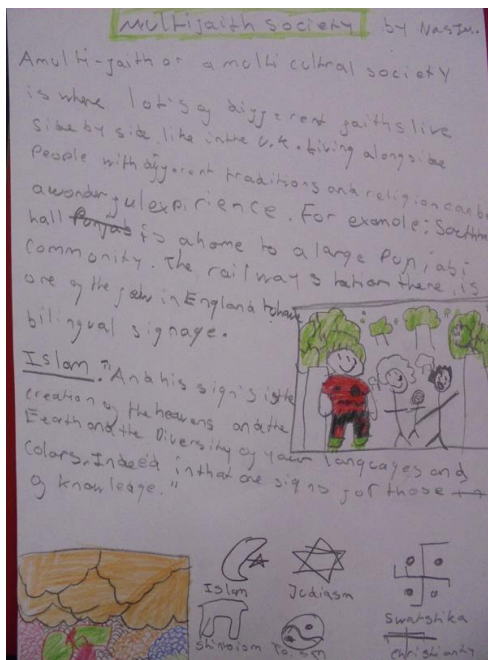 multifaith society by
A multi-faith or a multi cultral society
is where lot's of different faiths live
side by side, like in the U.K. Living alongside
People with different traditions and religion can be
a wonderful expirience. For example: South
hall is a home to a large Punjabi
Community. The railway station there is
one of the few in England to have
bilingual signage.
Islam: "And his sign's is the
creation of the heavens and the
Eearth and the Diversity of your languages and
Colors. Indeed in that are signs for those
of knowleage."
Islam Judiasm Swatshika
Shintoism Taoism Christianty